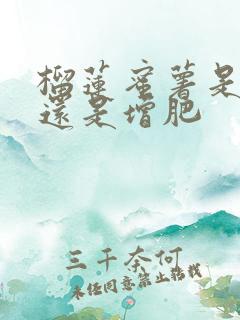 榴蓮蜜薯是
還是增肥
三千奈何
未经同意禁止转载